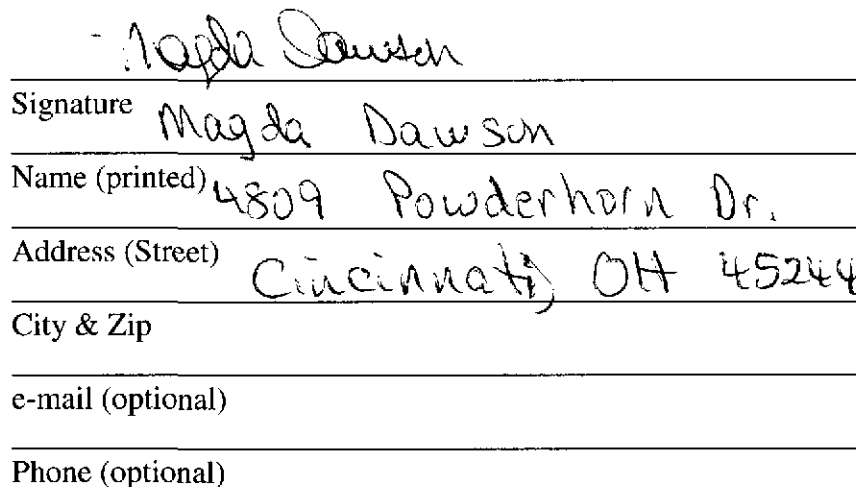 Magda Dawson
Signature
Magda Dawson
Name (printed)
4809 Powderhorn Dr.
Address (Street)
Cincinnati, OH 45244
City & Zip
e-mail (optional)
Phone (optional)